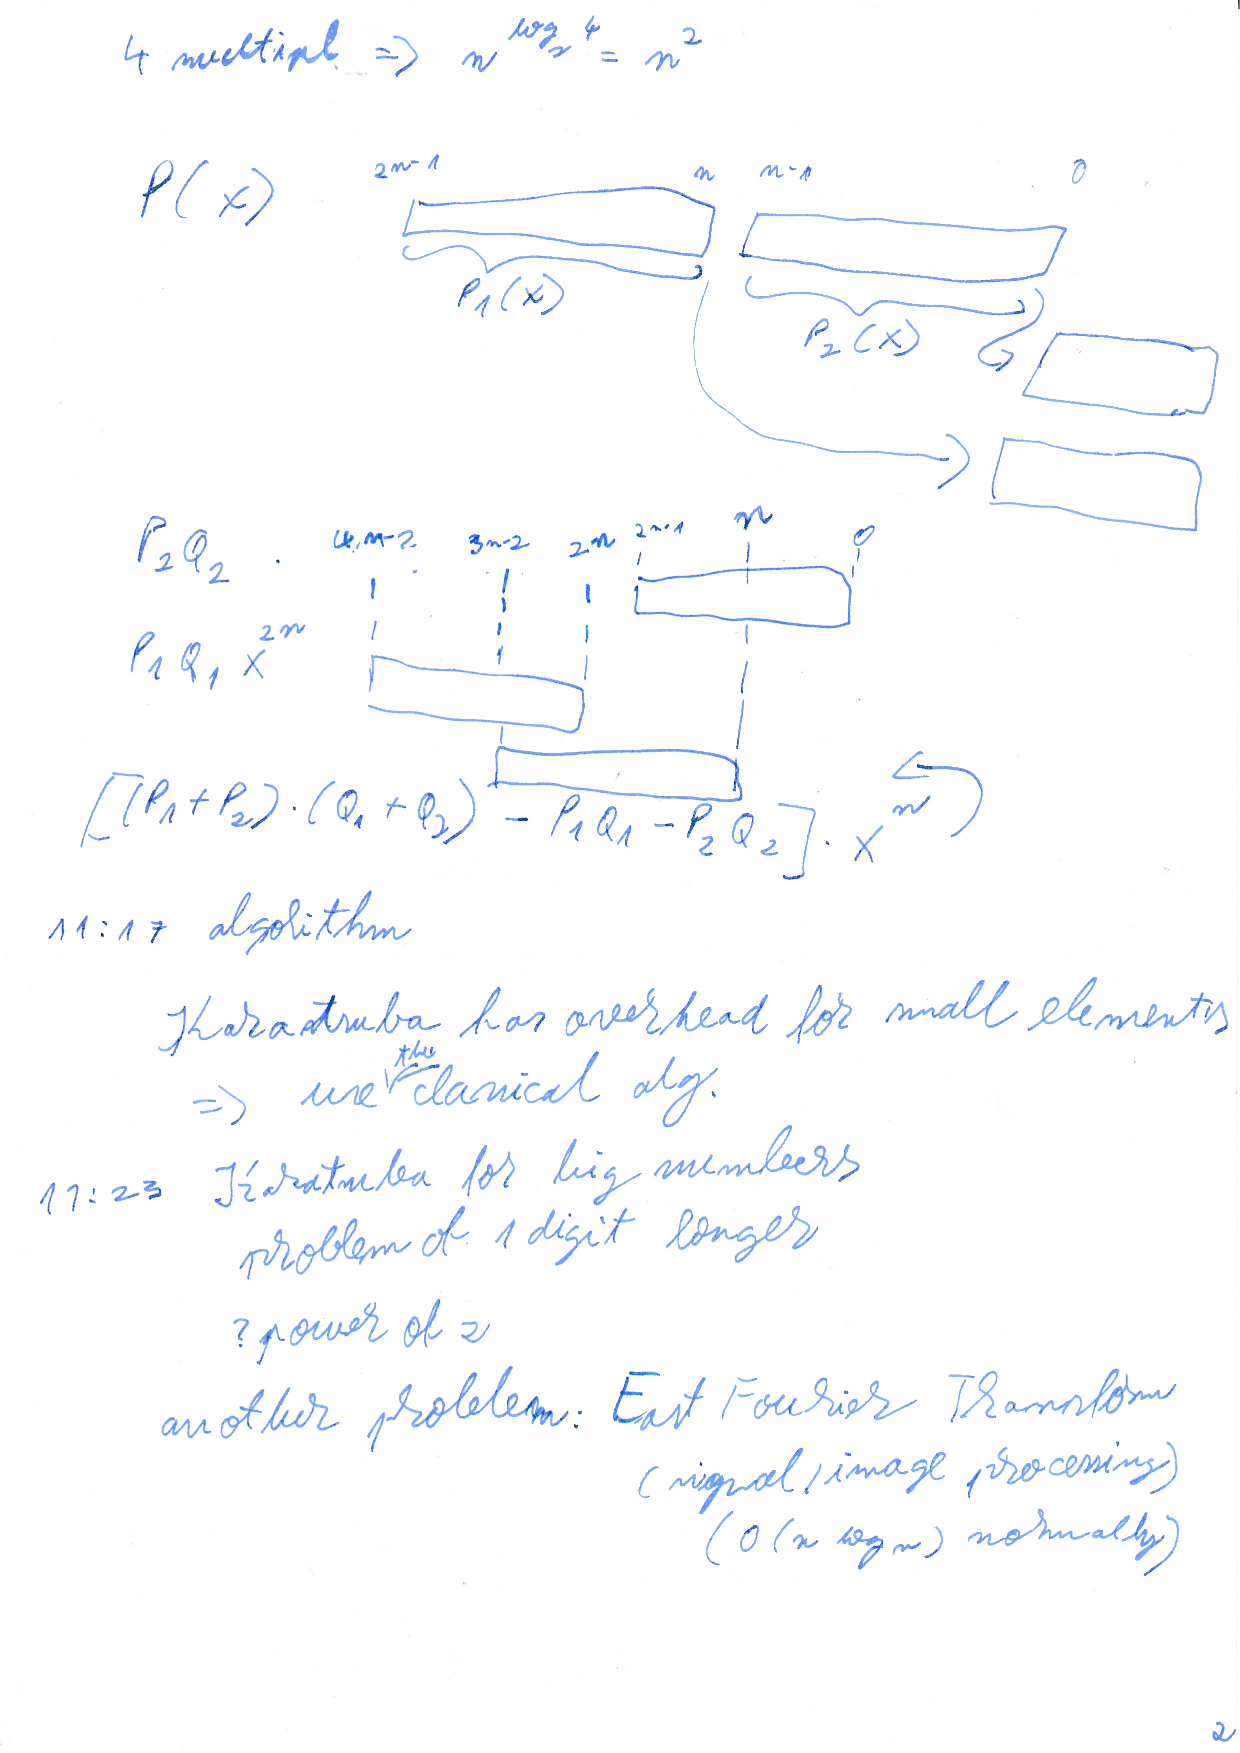 4 multipl => n^log_2 4 = n^2
P(x) 2n-1 n n-1 0
P_1(x)
P_2(x)
P_2Q_2 4n-2 3n-2 2n 2n-1 n 0
P_1Q_1 x^2n
[(P_1+P_2)·(Q_1+Q_2) - P_1Q_1 - P_2Q_2]·x^n
11:17 algorithm
Karatsuba has overhead for small elements
=> use the classical alg.
11:23 Karatsuba for big numbers
problem of 1 digit longer
? power of 2
another problem: Fast Fourier Transform
(signal/image processing)
(O(n log n) normally)
2